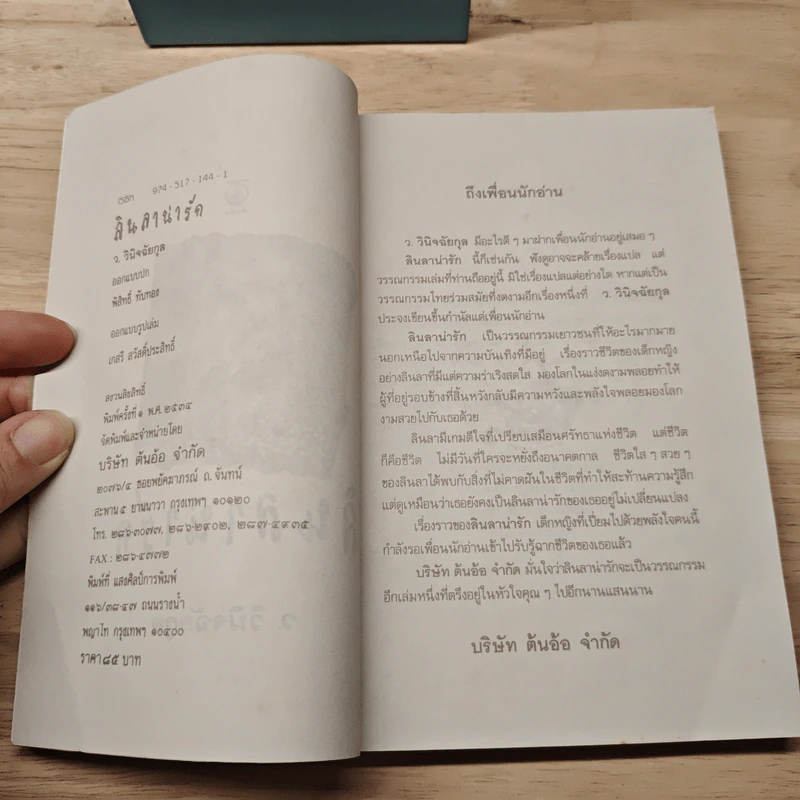 ISBN 974-517-144-1
ลินลาน่ารัก
ว. วินิจฉัยกุล
ออกแบบปก
พิสิทธิ์ ทับทอง
ออกแบบรูปเล่ม
เกสรี สวัสดิ์ประสิทธิ์
สงวนลิขสิทธิ์
พิมพ์ครั้งที่ ๑ พ.ศ. ๒๕๓๔
จัดพิมพ์และจำหน่ายโดย
บริษัท ต้นอ้อ จำกัด
๒๐๗๖/๔ ซอยพยัคฆาภรณ์ ถ.จันทน์
สะพาน ๕ ยานนาวา กรุงเทพฯ ๑๐๑๒๐
โทร. ๒๘๖-๓๐๗๗, ๒๘๖-๒๙๐๒, ๒๘๗-๔๙๓๕
FAX : ๒๘๖-๔๗๗๒
พิมพ์ที่ แสงศิลป์การพิมพ์
๑๑๖/๓๘-๔๗ ถนนรางน้ำ
พญาไท กรุงเทพฯ ๑๐๔๐๐
ราคา ๘๕ บาท
ถึงเพื่อนนักอ่าน
ว. วินิจฉัยกุล มีอะไรดี ๆ มาฝากเพื่อนนักอ่านอยู่เสมอ ๆ
ลินลาน่ารัก นี้ก็เช่นกัน ฟังดูอาจจะคล้ายเรื่องแปล แต่
วรรณกรรมเล่มที่ท่านถืออยู่นี้ มิใช่เรื่องแปลแต่อย่างใด หากแต่เป็น
วรรณกรรมไทยร่วมสมัยที่งดงามอีกเรื่องหนึ่งที่ ว. วินิจฉัยกุล
ประจงเขียนขึ้นกำนัลแด่เพื่อนนักอ่าน
ลินลาน่ารัก เป็นวรรณกรรมเยาวชนที่ให้อะไรมากมาย
นอกเหนือไปจากความบันเทิงที่มีอยู่ เรื่องราวชีวิตของเด็กหญิง
อย่างลินลาที่มีแต่ความร่าเริงสดใส มองโลกในแง่งดงามพลอยทำให้
ผู้ที่อยู่รอบข้างที่สิ้นหวังกลับมีความหวังและพลังใจพลอยมองโลก
งามสวยไปกับเธอด้วย
ลินลามีเกมดีใจที่เปรียบเสมือนศรัทธาแห่งชีวิต แต่ชีวิต
ก็คือชีวิต ไม่มีวันที่ใครจะหยั่งถึงอนาคตกาล ชีวิตใส ๆ สวย ๆ
ของลินลาได้พบกับสิ่งที่ไม่คาดฝันในชีวิตที่ทำให้สะท้านความรู้สึก
แต่ดูเหมือนว่าเธอยังคงเป็นลินลาน่ารักของเธออยู่ไม่เปลี่ยนแปลง
เรื่องราวของลินลาน่ารัก เด็กหญิงที่เปี่ยมไปด้วยพลังใจคนนี้
กำลังรอเพื่อนนักอ่านเข้าไปรับรู้ฉากชีวิตของเธอแล้ว
บริษัท ต้นอ้อ จำกัด มั่นใจว่าลินลาน่ารักจะเป็นวรรณกรรม
อีกเล่มหนึ่งที่ตรึงอยู่ในหัวใจคุณ ๆ ไปอีกนานแสนนาน
บริษัท ต้นอ้อ จำกัด